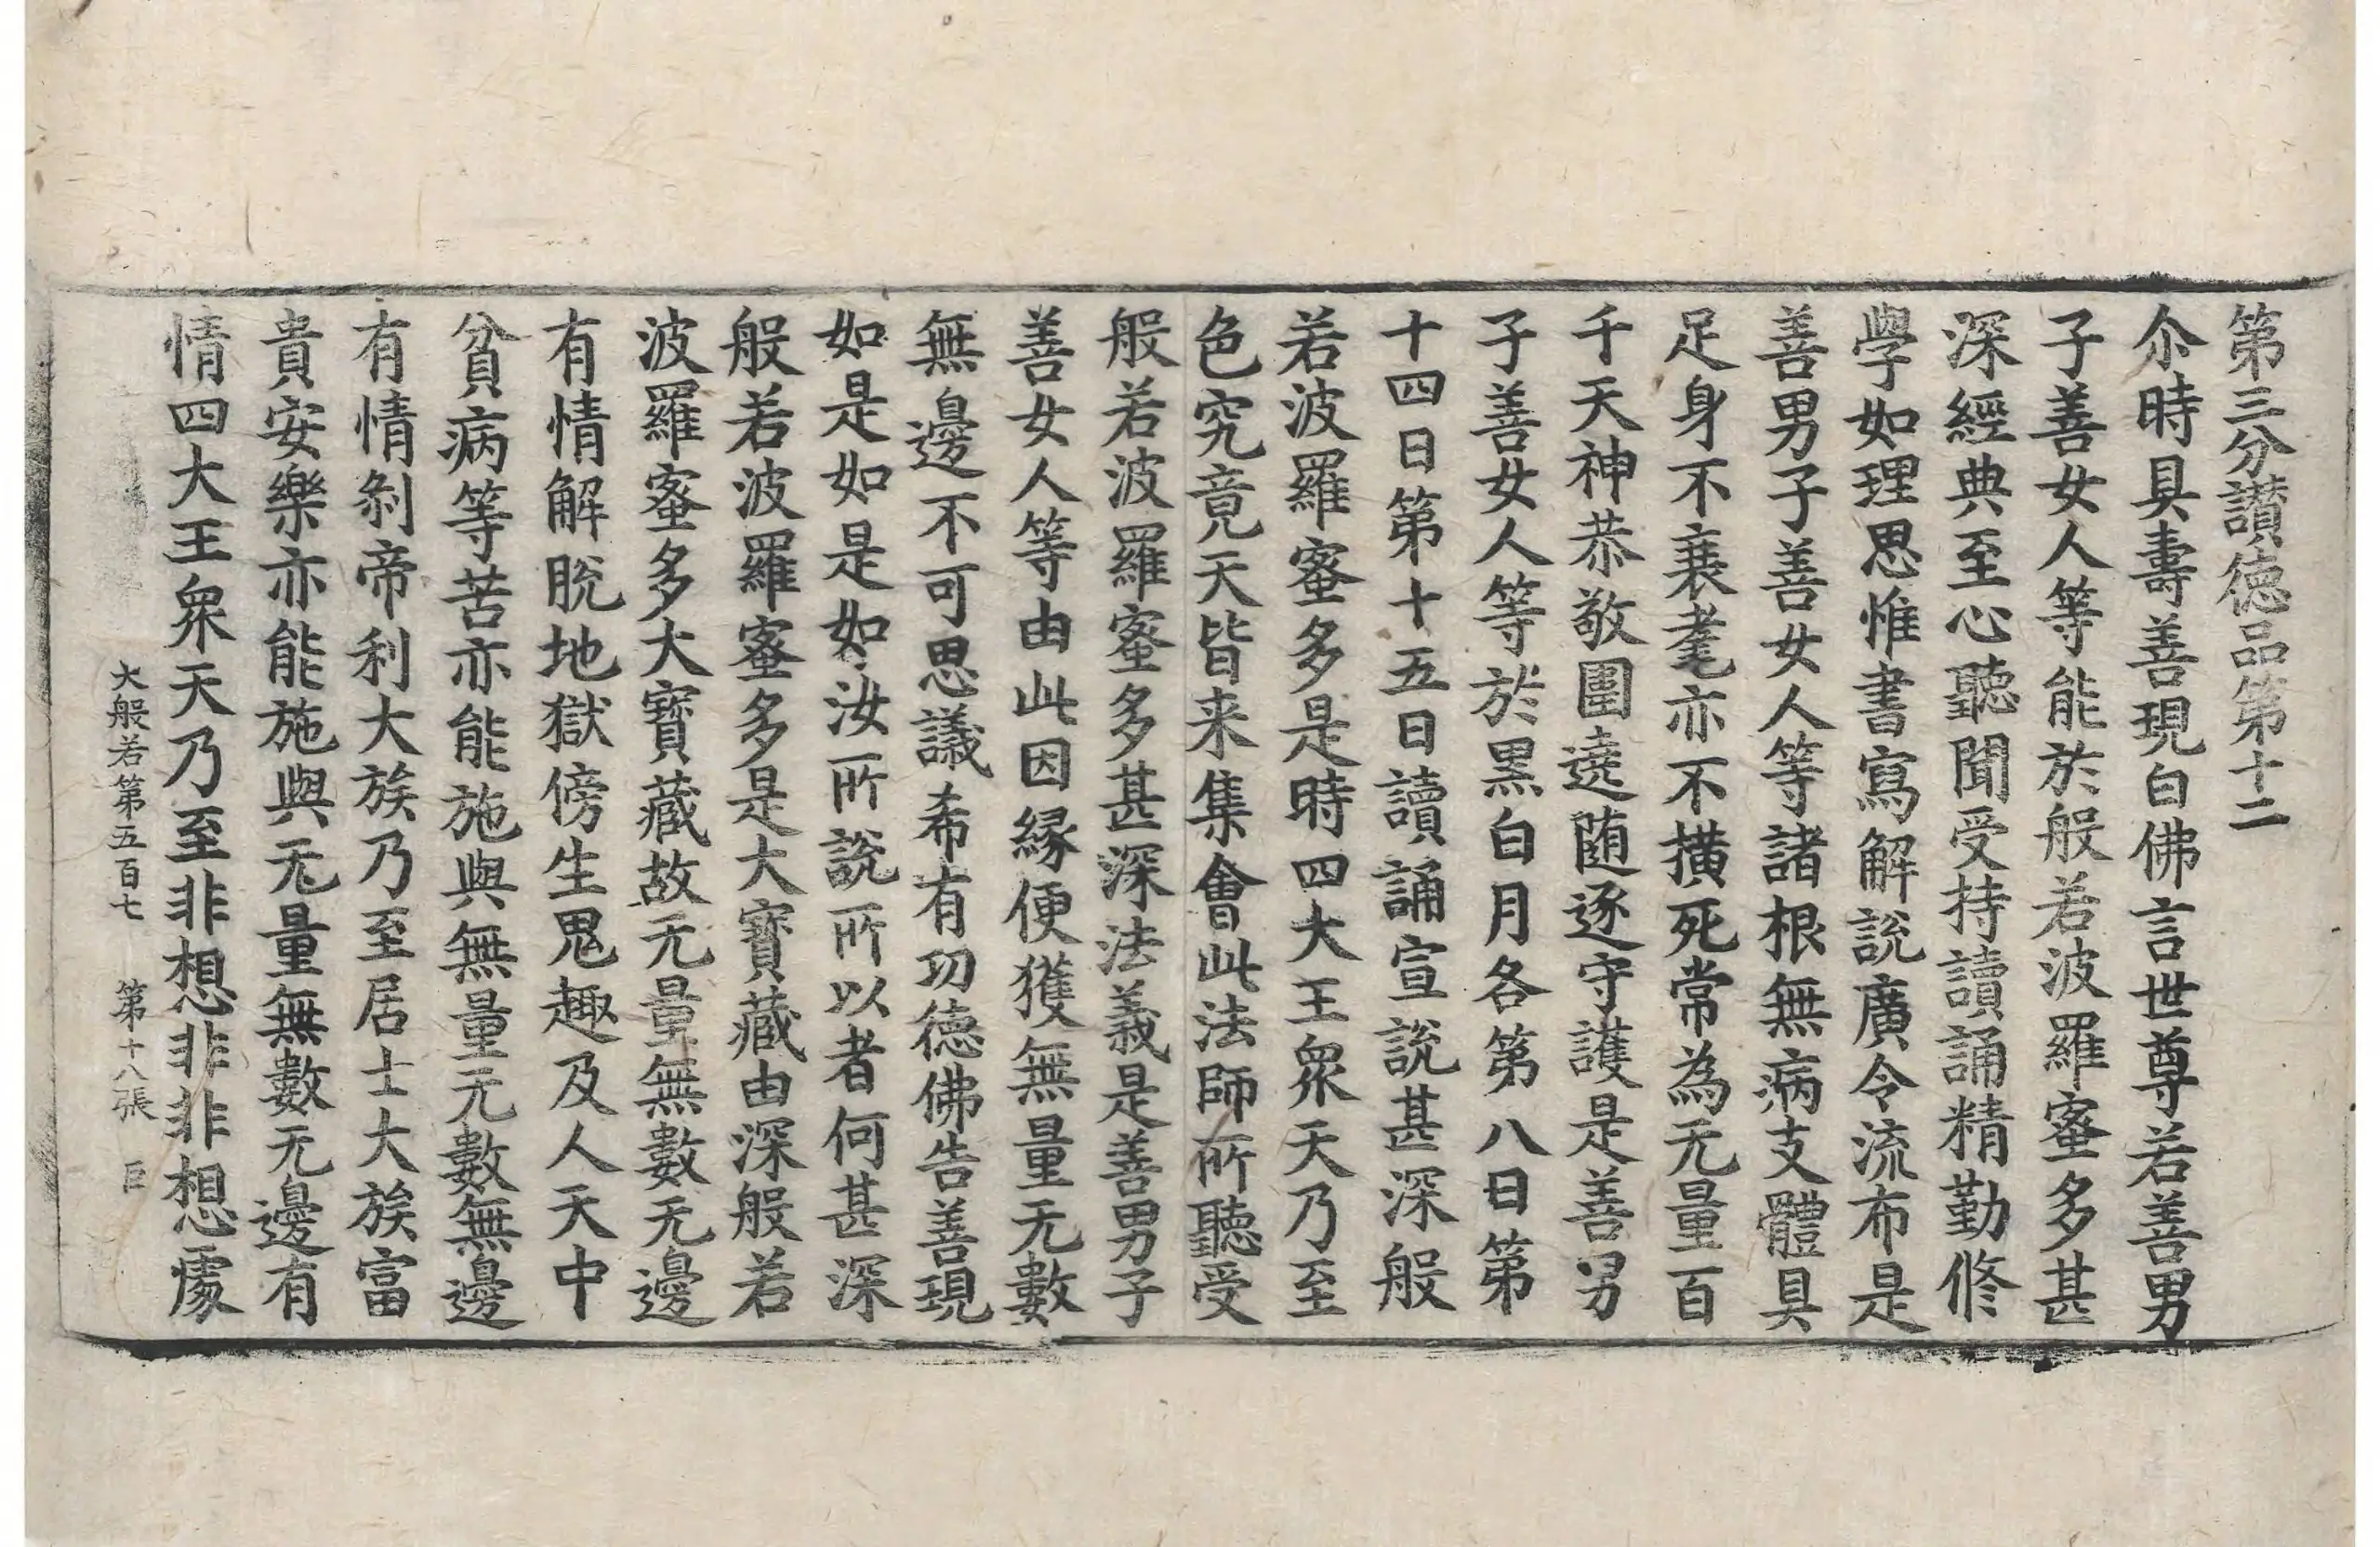 第三分讃徳品第十二
尒時具壽善現白佛言世尊若善男
子善女人等能於般若波羅蜜多甚
深經典至心聽聞受持讀誦精勤修
學如理思惟書寫解說廣令流布是
善男子善女人等諸根無病支體具
足身不衰耄亦不橫死常為无量百
千天神恭敬圍遶随逐守護是善男
子善女人等於黑白月各第八日第
十四日第十五日讀誦宣說甚深般
若波羅蜜多是時四大王衆天乃至
色究竟天皆来集會此法師所聽受
般若波羅蜜多甚深法義是善男子
善女人等由此因緣便獲無量无數
無邊不可思議希有功徳佛告善現
如是如是如汝所說所以者何甚深
般若波羅蜜多是大寶藏由深般若
波羅蜜多大寶藏故无量無數无邊
有情解脫地獄傍生鬼趣及人天中
貧病等苦亦能施與無量无數無邊
有情剎帝利大族乃至居士大族富
貴安樂亦能施與无量無數无邊有
情四大王衆天乃至非想非非想處
大般若第五百七 第十八張 巨